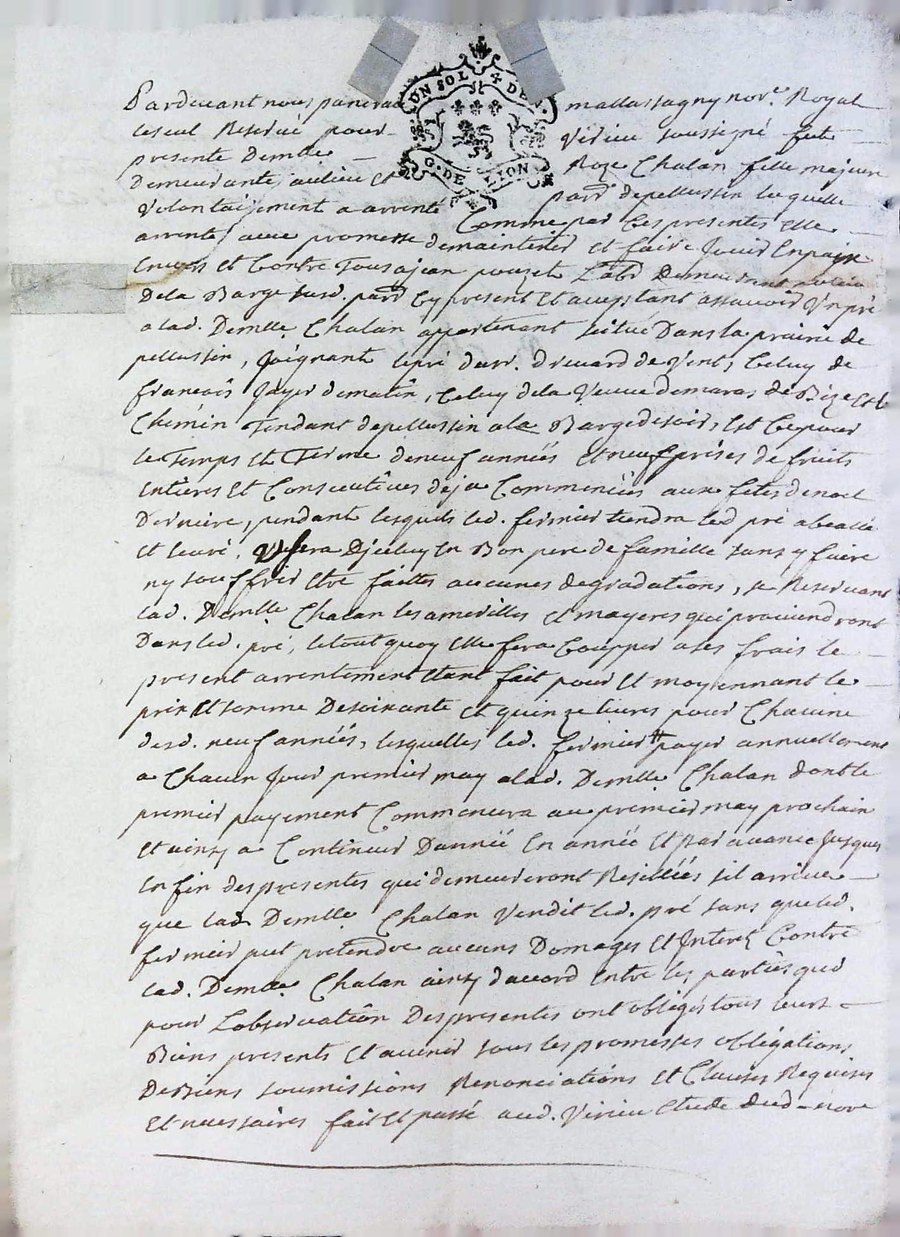 UN SOL 4 DEN.
G. DE LYON
Pardevant nous mallassagny nore. Royal
Reservé pour Virieu soussigné fut
presente Demlle. Roze Chalan fille majeure
Demeurante au lieu et parr. de pellussin laquelle
volontairement a arrenté Comme par Ces presentes elle
arrente avec promesse demaintenir et faire Jouir En paix
Envers et Contre Tous a jean pouzet Lab.
Dela Barge susd. parr. Cy present et aceptant assavoir Un pré
a lad. Demlle. Chalan appartenant scitué Dans la prairie de
pellussin, Joignant le pré dusr. de Vent, Celuy de
françois Jayer dematin, Celuy dela Veuve demaras de Bize et le
Chemin Tendant depellussin ala Barge desoir, Est Ce pour
le Temps et Terme deneuf années et neuf prises de fruits
entieres et Consecutives deja Commencées aux fetes denoel
Derniere, pendant lesquels led. fermier tiendra led. pré
et Usera Diceluy En Bon pere de famille sans y faire
ny souffrir etre faittes aucunes degradations, se Reservant
lad. Demlle. Chalan les et mayeres qui proviendront
Dans led. pré, letout quoy elle fera Coupper a ses frais le
present arrentement etant fait pour et moyennant le
prix et somme Desoixante et quinze livres pour Chacune
desd. neuf années, lesquelles led. fermier # payer annuellement
a Chacun Jour premier may alad. Demlle. Chalan dont le
premier payement Commencera au premier may prochain
et ainsy a Continuer Dannée En année et par avance Jusques
En fin des presentes qui demeureront Resiliées sil arrive
que lad. Demlle. Chalan Vendit led. pré sans que led.
fermier put pretendre aucuns Domages et Interets Contre
lad. Demlle. Chalan ainsy daccord Entre les parties qui
pour Lobservation Des presentes ont obligés tous leurs
Biens presents et avenir sous les promesses obligations
De Biens soumissions Renonciations et Clauses Requises
et necessaires fait et passé aud. Virieu etude dud. nore